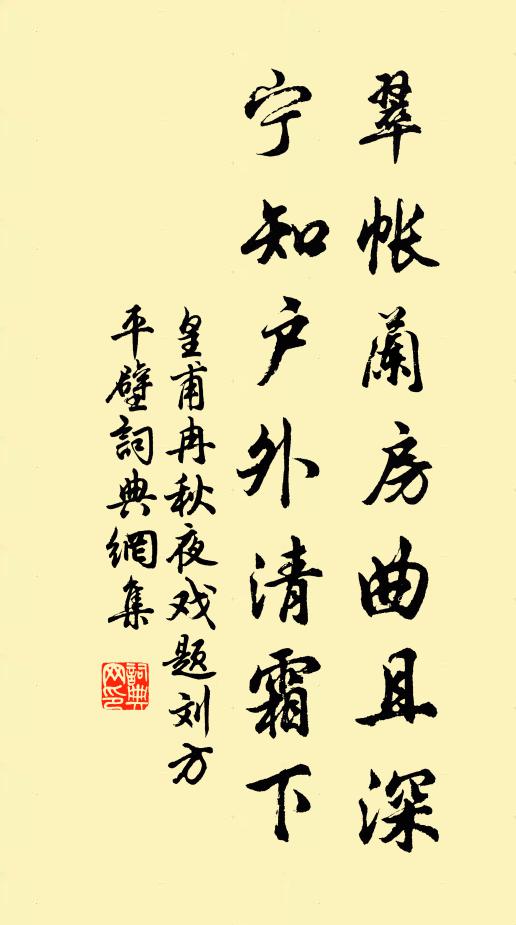 翠帐蘭房曲且深
宁知户外清霜下
皇甫冉秋夜戏题刘方
平壁詞典網集
詞典網印